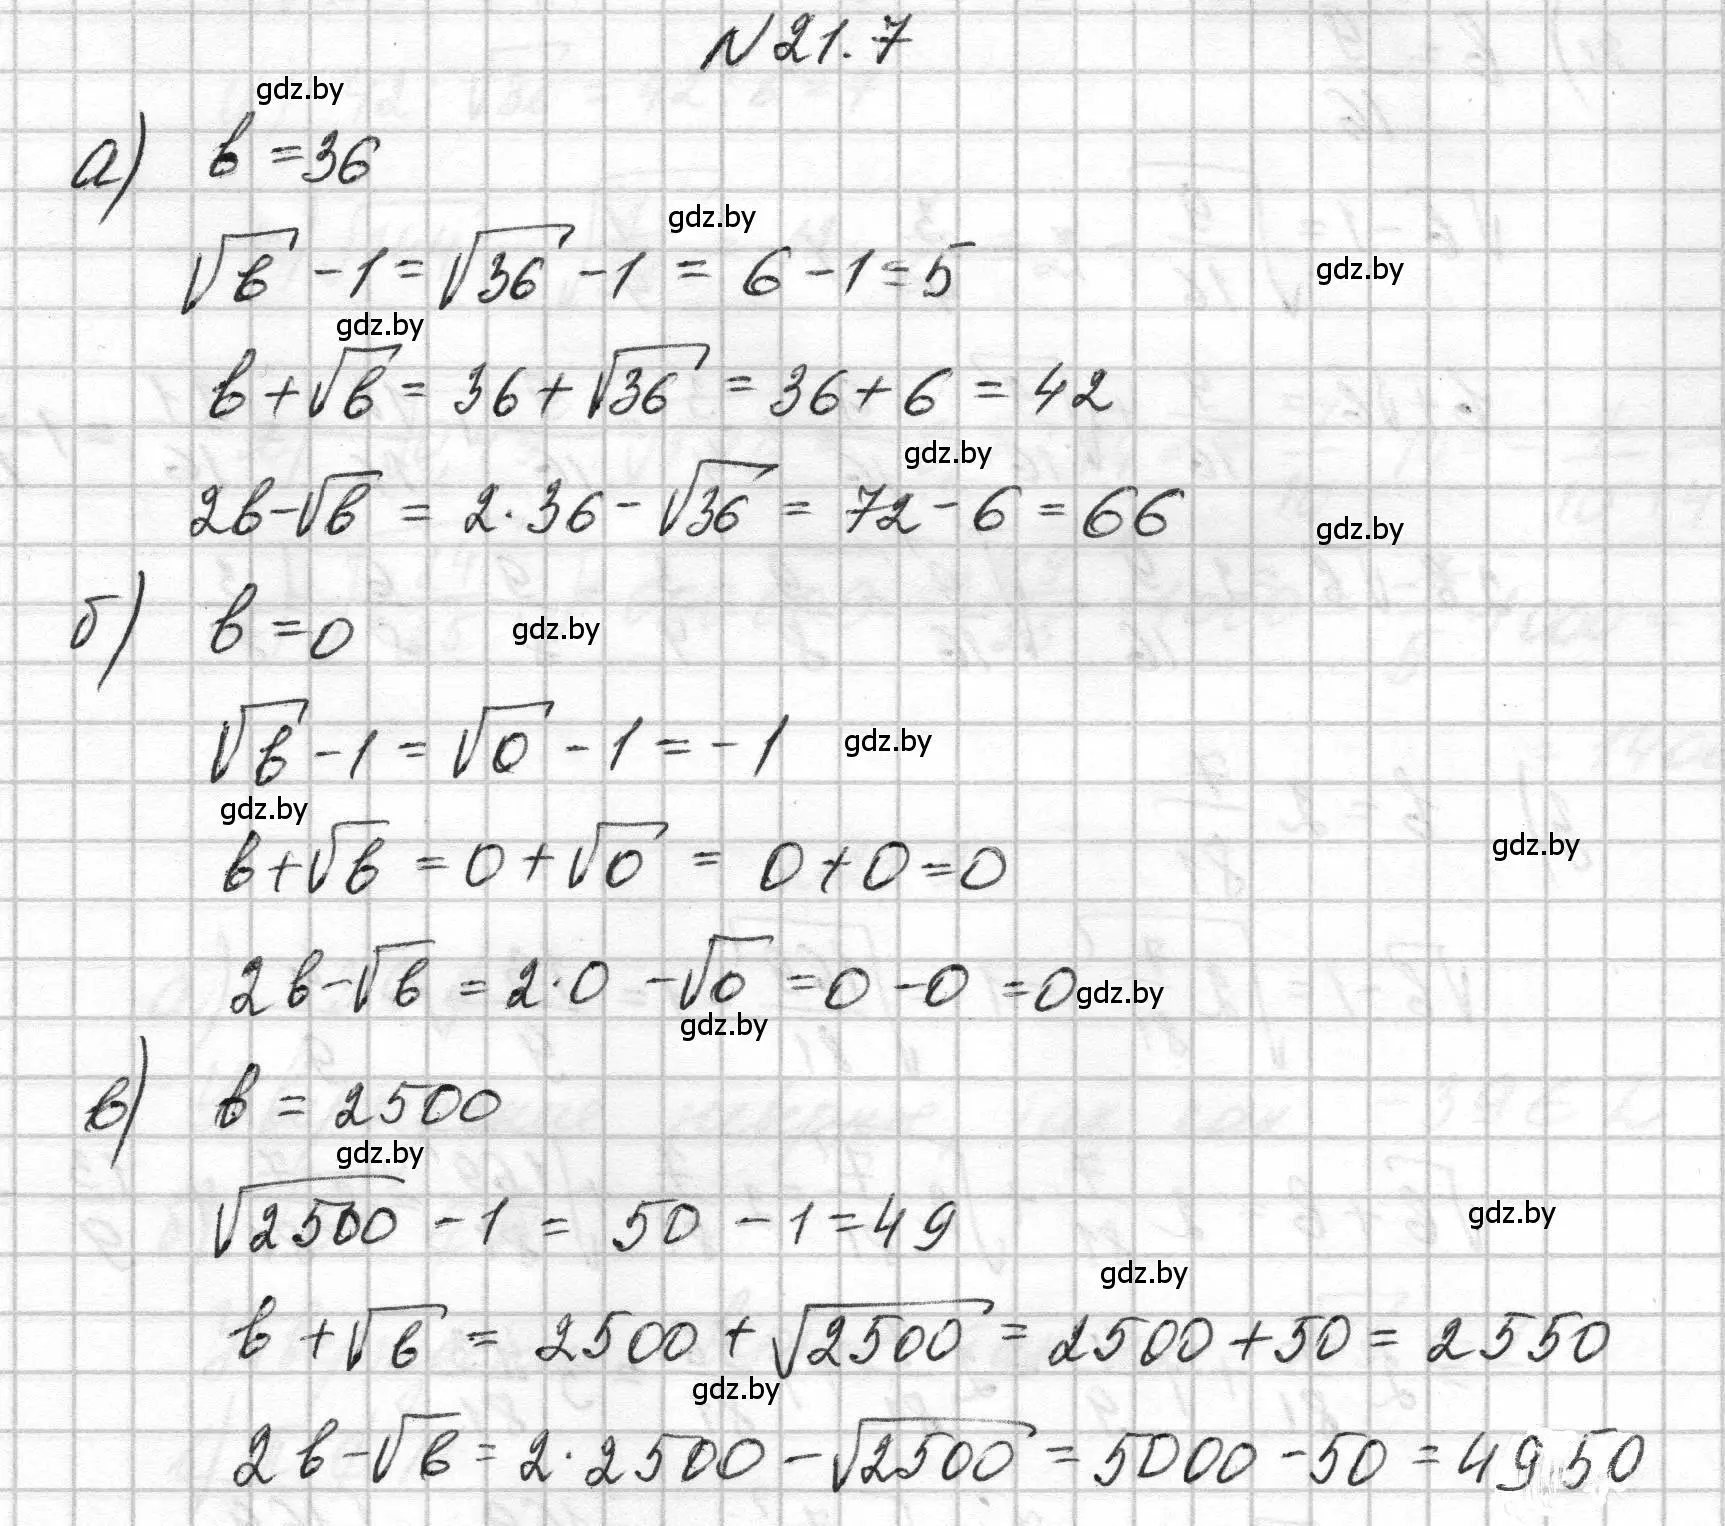 №21.7
gdz.by
а) b = 36
gdz.by
√b - 1 = √36 - 1 = 6 - 1 = 5
gdz.by
gdz.by
b + √b = 36 + √36 = 36 + 6 = 42
gdz.by
2b - √b = 2 · 36 - √36 = 72 - 6 = 66
gdz.by
б) b = 0
gdz.by
√b - 1 = √0 - 1 = -1
gdz.by
gdz.by
b + √b = 0 + √0 = 0 + 0 = 0
gdz.by
2b - √b = 2 · 0 - √0 = 0 - 0 = 0
gdz.by
gdz.by
в) b = 2500
gdz.by
√2500 - 1 = 50 - 1 = 49
gdz.by
gdz.by
b + √b = 2500 + √2500 = 2500 + 50 = 2550
gdz.by
2b - √b = 2 · 2500 - √2500 = 5000 - 50 = 4950